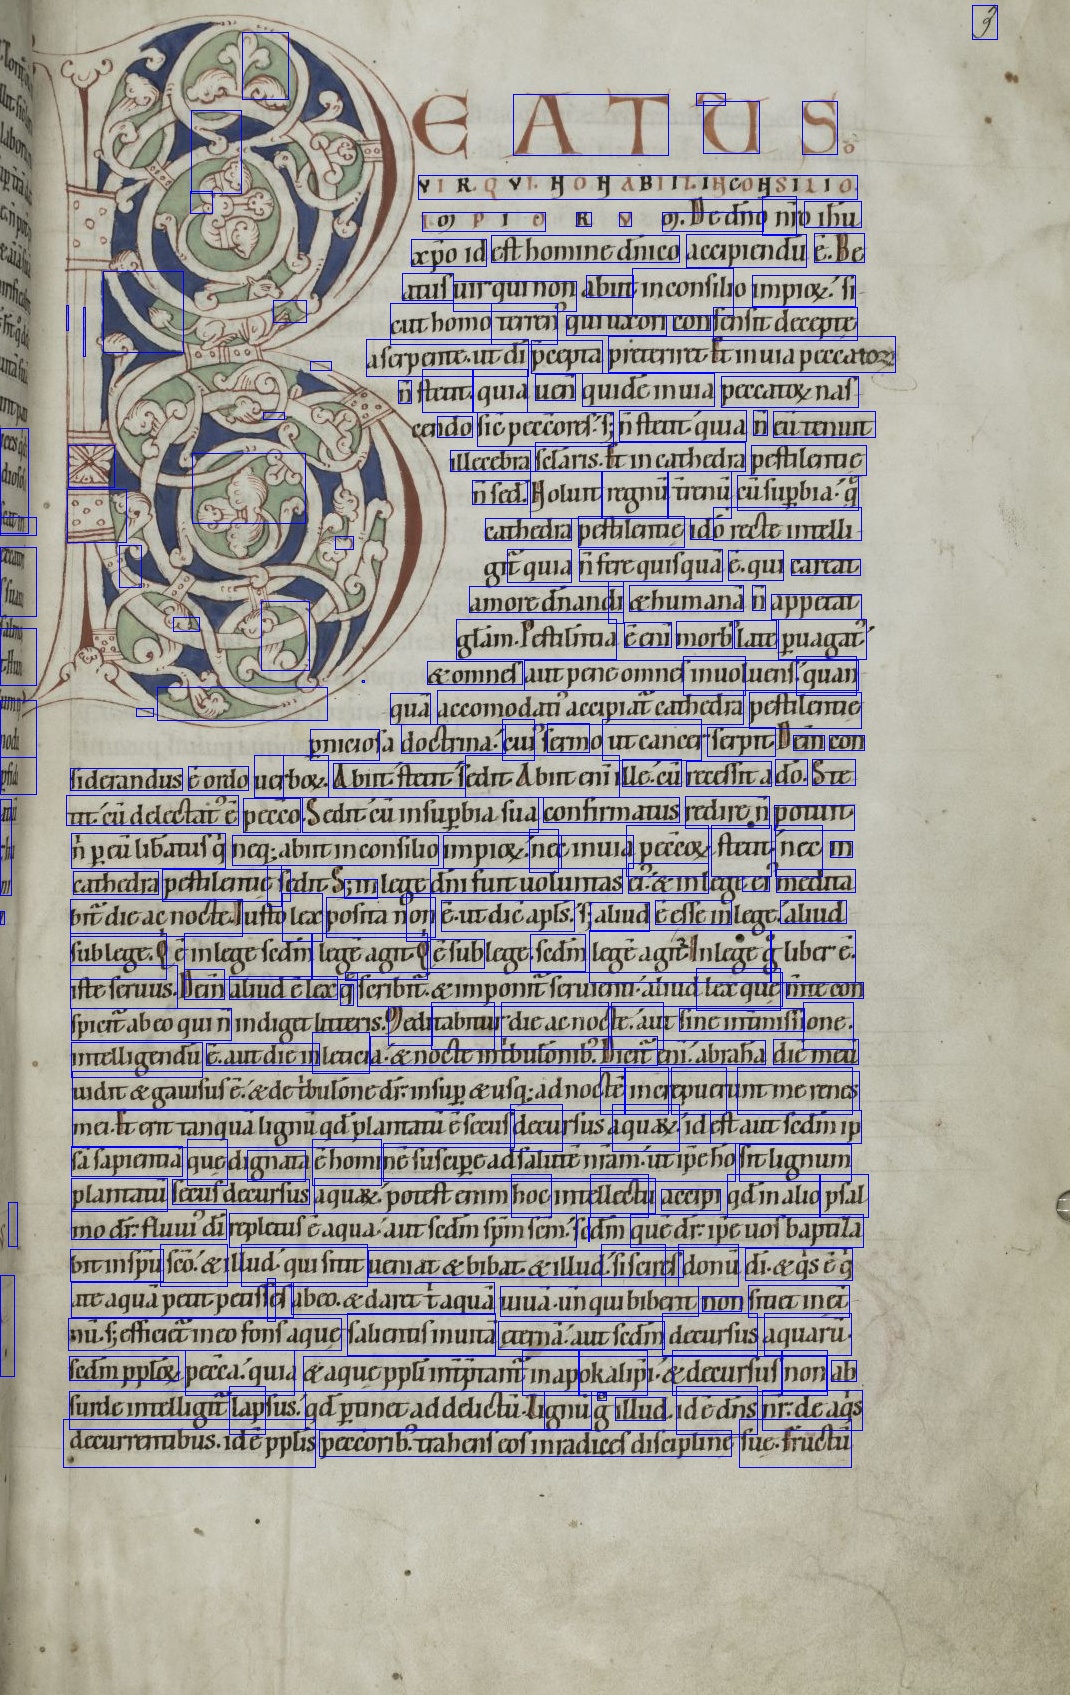 3
BEATUS
VIR QVI NON ABIIT IN CONSILIO
IMPIORVM. De dn̄o nr̄o ih̄u
xp̄o id est homine dn̄ico accipiendū ē. Be
atus uir qui non abiit in consilio impioꝝ. si
cut homo terren᾽ qui uxori consensit decepte
a serpente. ut di p̄cepta preteriret. Et in uia peccatoꝝ
n̄ stetit. quia uen̄ quidē in uia peccatoꝝ nas
cendo sic peccores. s; n̄ stetit quia n̄ eū tenuit
illecebra sc̄laris. Et in cathedra pestilentie
n̄ sed. Noluit regnū t̄renū cū sup̄bia. q̄
cathedra pestilentie ido recte intelli
git̄ quia n̄ fere quisquā ē. qui careat
amore dn̄andi & humanā n̄ appetat
glām. Pestilentia ē eni morb᾽ late puagat᾽
& omnes aut pene omnes inuoluens. quan
quā accomodati᾽ accipiat̄ cathedra pestilentie
p̄niciosa doctrina. cui᾽ sermo ut cancer serpit. Dein con
siderandus ē ordo uerboꝝ. Abiit. stetit. sedit. Abiit enī ille. cū recessit a do. Ste
tit. cū delectat᾽ ē pecco. Sedit. cū in sup̄bia sua confirmatus redire n̄ potuit
n̄ p eū libatus q̄ neq; abiit in consilio impioꝝ. nec in uia peccoꝝ stetit. nec in
cathedra pestilentie sedit. S; in lege dn̄i fuit uoluntas ei᾽. & in lege ei᾽ medita
bit̄ die ac nocte. Iusto lex posita non ē. ut dic̄ apls̄. s; aliud ē esse in lege. aliud
sub lege. Q ē in lege sedm̄ legē agit. Q ē sub lege. sedm̄ legē agit̄. In lege q̄ liber ē.
iste seruus. Dein aliud ē lex q̄ scribit̄. & imponit̄ seruienti. aliud lex que mte con
spicit̄ ab eo qui n̄ indiget litteris. Meditabitur die ac nocte. aut sine int̄missione.
intelligendū ē. aut die in leticia. & nocte in t̄bulonib᾽. Dicit̄ enī. abrahā diē meū
uidit & gauisus ē. & de t̄bulone dr̄. insup & usq; ad noctē increpuerunt me renes
mei. Et erit tanquā lignū qd̄ plantatū ē secus decursus aquaꝝ. id est aut sedm̄ ip
sā sapientiā que dignata ē hominē suscipe ad salutē nr̄am. ut ip̄e ho sit lignum
plantatū secus decursus aquaꝝ. potest enim hoc intellectu accipi qd̄ in alio psal
mo dr̄. fluuiu᾽ di repletus ē aqua. aut sedm̄ sp̄m sc̄m. sedm̄ que dr̄. ip̄e uos baptiza
bit in sp̄u sc̄o. & illud. qui sitit ueniat & bibat. & illud. si scires donū di. & q̄s ē q̄
a te aquā petit petisses ab eo. & daret t̄ aquā uiuā. un̄ qui biberit non sitiet in et̄
nū. s; efficiet̄ in eo fons aque salientis in uitā eternā. aut sedm̄ decursus aquarū.
sedm̄ pplōꝝ pecca. quia & aque ppli int̄p̄tant̄ in apokalipsi. & decursus non ab
surde intelligit̄ lapsus. qd̄ p̄tinet ad delictū. Lignū g° illud. id ē dn̄s nr̄. de aq̄s
decurrentibus. id ē pplis peccorib᾽. trahens eos in radices discipline sue. fructū